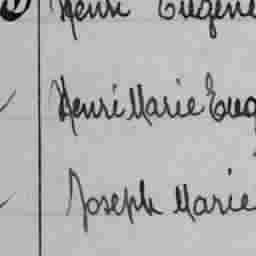 Henri Eugène
Henri Marie Eug
Joseph Marie